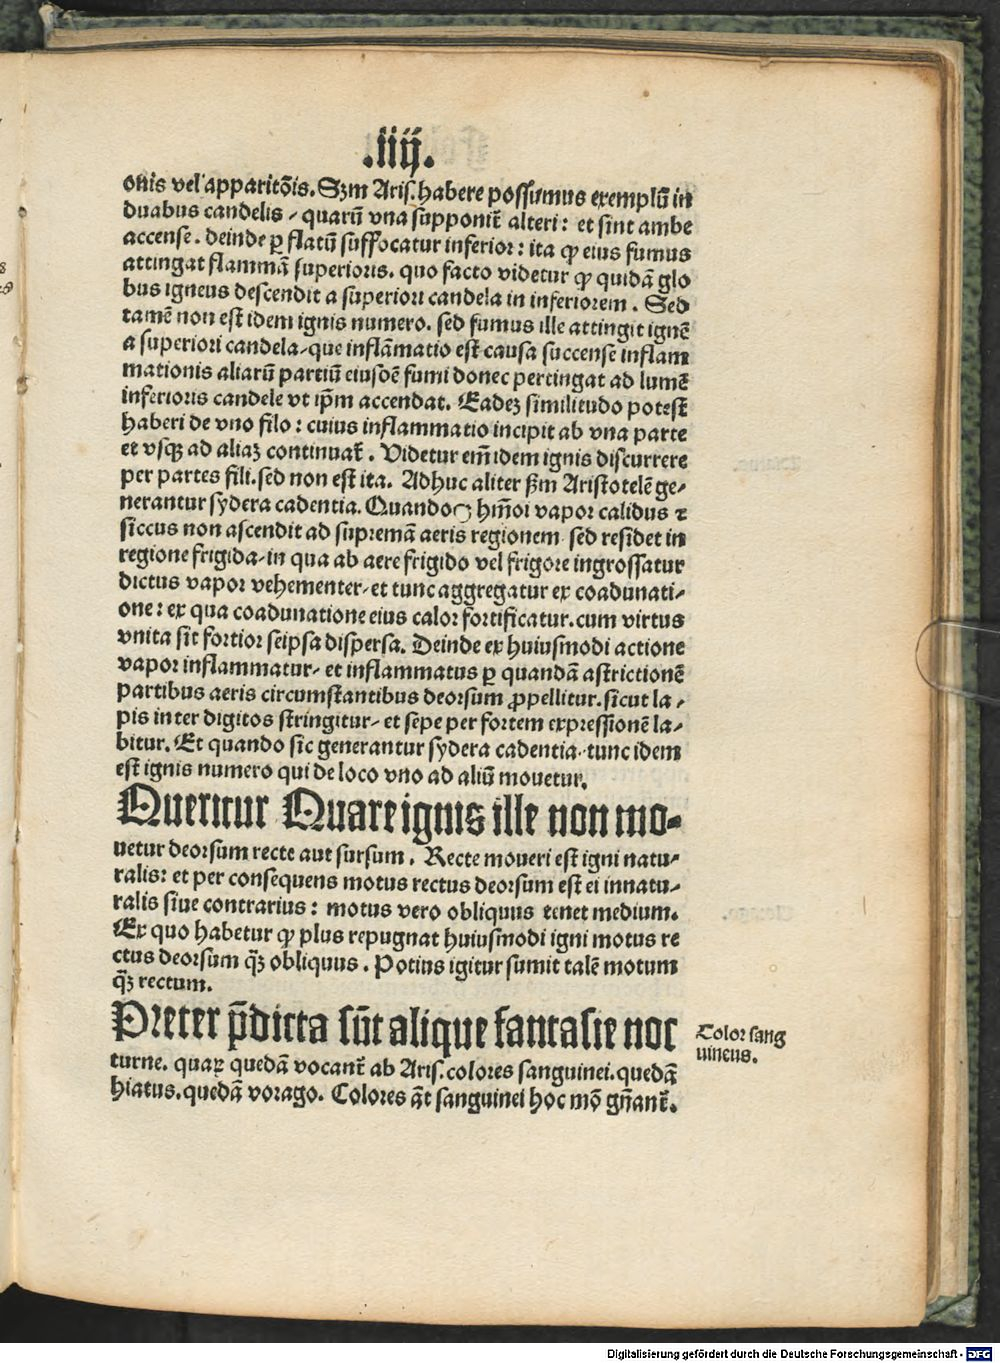 .iiij.
onis vel apparitōis. Sꝫm Aris. habere possumus exemplū in
duabus candelis / quarū vna supponit̄ alteri: et sint ambe
accense. deinde ꝑ flatū suffocatur inferior: ita ꝙ eius fumus
attingat flammā superioris. quo facto videtur ꝙ quidā glo
bus igneus descendit a superiori candela in inferiorem. Sed
tamē non est idem ignis numero. sed fumus ille attingit ignē
a superiori candela / que inflāmatio est causa succense inflam
mationis aliarū partiū eiusdē fumi donec pertingat ad lumē
inferioris candele vt ip̄m accendat. Eadeꝫ similitudo potest
haberi de vno filo: cuius inflammatio incipit ab vna parte
et vsqꝫ ad aliaꝫ continuat̄. Videtur em̄ idem ignis discurrere
per partes fili. sed non est ita. Adhuc aliter ẜm Aristotelē ge⸗
nerantur sydera cadentia. Quando hm̄oi vapor calidus ⁊
siccus non ascendit ad supremā aeris regionem sed residet in
regione frigida / in qua ab aere frigido vel frigore ingrossatur
dictus vapor vehementer / et tunc aggregatur ex coadunati⸗
one: ex qua coadunatione eius calor fortificatur. cum virtus
vnita sit fortior seipsa dispersa. Deinde ex huiusmodi actione
vapor inflammatur / et inflammatus ꝑ quandā astrictionē
partibus aeris circumstantibus deorsum ꝓpellitur. sicut la⸗
pis inter digitos stringitur / et sepe per fortem expressionē la⸗
bitur. Et quando sic generantur sydera cadentia / tunc idem
est ignis numero qui de loco vno ad aliū mouetur.
Queritur Quare ignis ille non mo⸗
uetur deorsum recte aut sursum. Recte moueri est igni natu⸗
ralis: et per consequens motus rectus deorsum est ei innatu⸗
ralis siue contrarius: motus vero obliquus tenet medium.
Ex quo habetur ꝙ plus repugnat huiusmodi igni motus re
ctus deorsum q̄ꝫ obliquus. Potius igitur sumit talē motum
q̄ꝫ rectum.
Preter p̄dicta sūt alique fantasie noc
turne. quaꝝ quedā vocant̄ ab Aris. colores sanguinei. quedā
hiatus. quedā vorago. Colores āt sanguinei hoc mō gn̄ant̄.
Color sang
uineus.
Digitalisierung gefördert durch die Deutsche Forschungsgemeinschaft - DFG